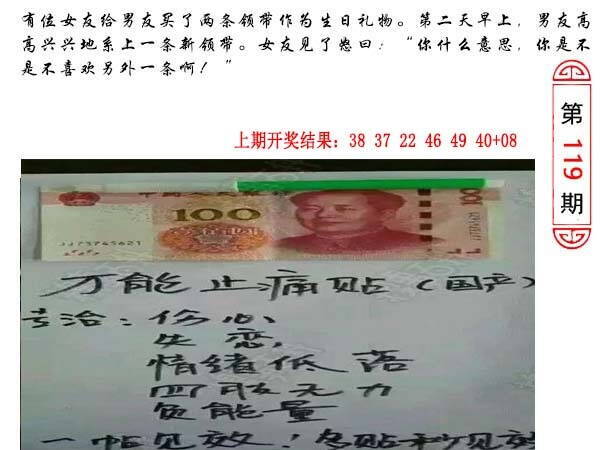 有位女友给男友买了两条领带作为生日礼物。第二天早上，男友高
高兴兴地系上一条新领带。女友见了怒曰：“你什么意思，你是不
是不喜欢另外一条啊！”
上期开奖结果：38 37 22 46 49 40+08
第
119
期
中国人民
100
100
JJ73745621
万能止痛贴（国产）
专治：伤心、
失恋，
情绪低落
四肢无力
负能量
一帖见效！多贴秒见效